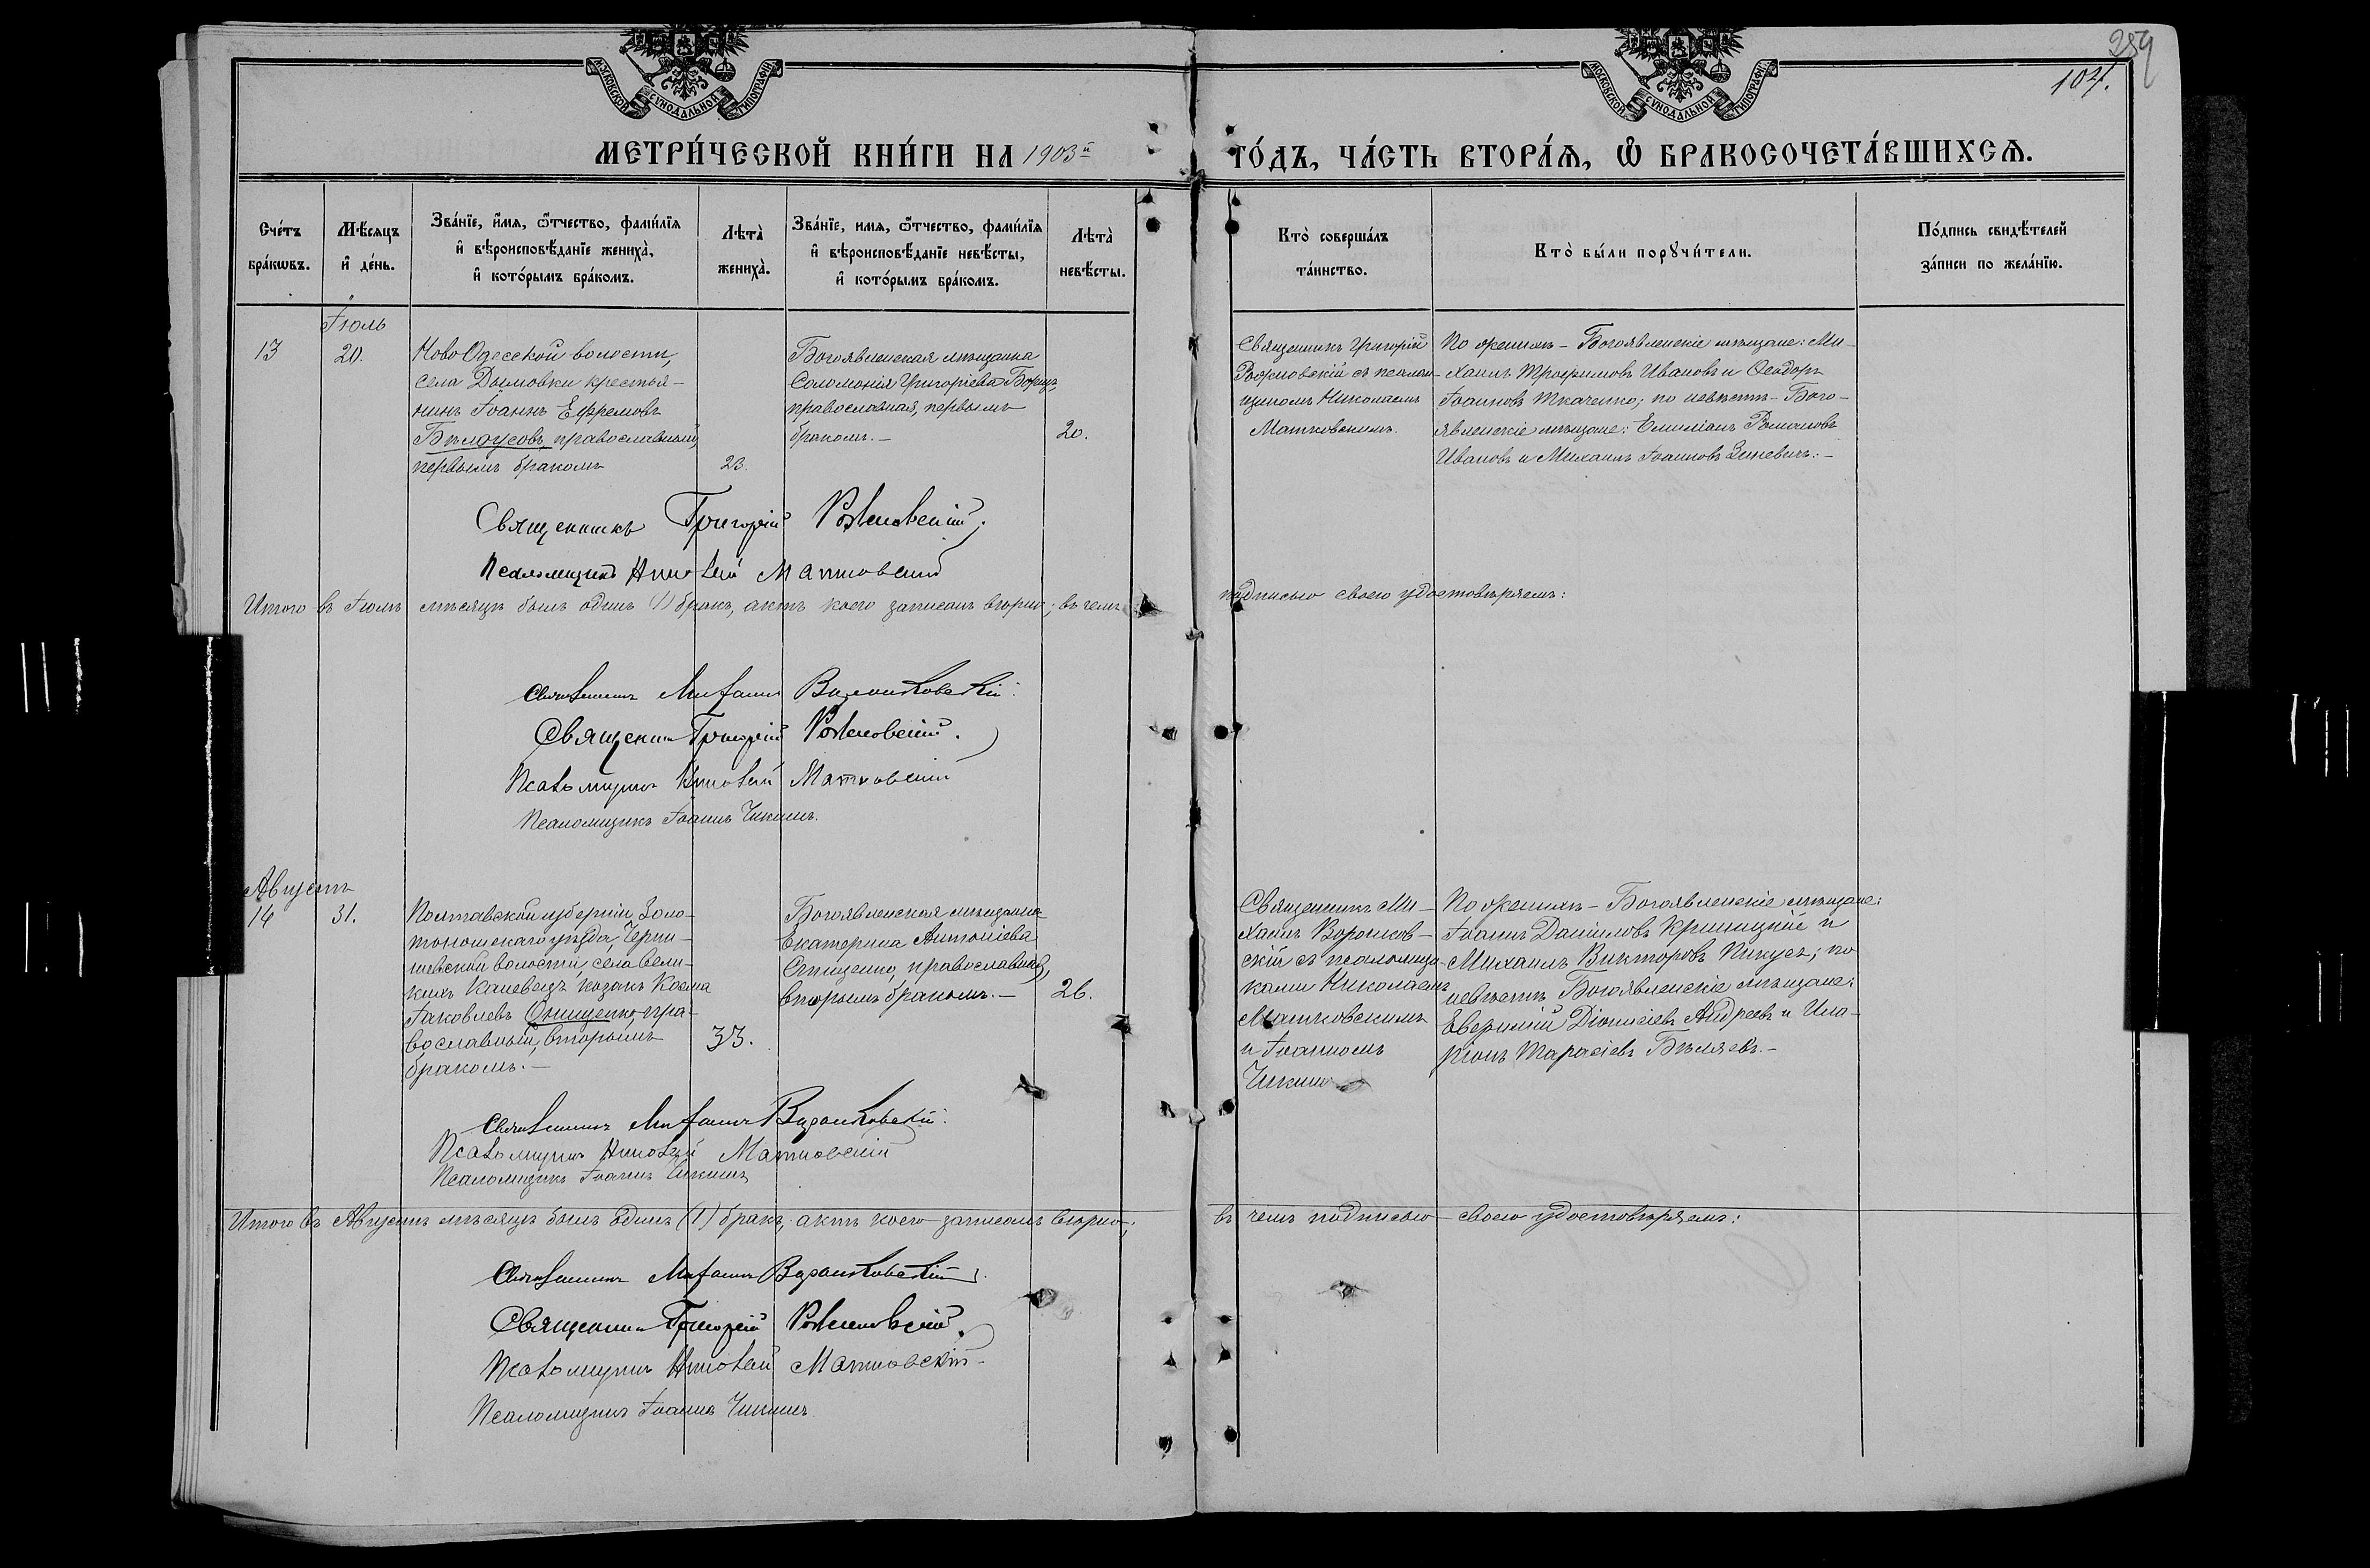 259
104.
МОСКОВСКОЙ СѴНОДАЛЬНОЙ ТИПОГРАФІИ
МОСКОВСКОЙ СѴНОДАЛЬНОЙ ТИПОГРАФІИ
МЕТРИ́ЧЕСКОЙ КНИ́ГИ НА 1903й ГО́ДЪ, ЧА́СТЬ ВТОРА́Ѧ, Ѽ БРАКОСОЧЕТА́ВШИХСѦ.
Сче́тъ бра́кѡвъ.
Мѣ́сяцъ и҆ де́нь.
Зва́нїе, и҆́мя, ѻ҆́тчество, фами́лїя
и҆ вѣроисповѣ́данїе жениха̀,
и҆ кото́рымъ бра́комъ.
Лѣта̀ жениха̀.
Зва́нїе, имя, ѻ҆́тчество, фами́лїя
и҆ вѣроисповѣ́данїе невѣ́сты,
и҆ кото́рымъ бра́комъ.
Лѣта̀ невѣ́сты.
Кто̀ соверша́лъ та́инство.
Кто̀ бы́ли порꙋчи́тели.
По́дпись свидѣ́телей
за́писи по жела́нїю.
Іюль
13
20.
Ново Одесской волости,
села Дымовки крестья-
нинъ Іоаннъ Ефремовъ
Бѣлоусовъ, православный,
первымъ бракомъ
23.
Богоявленская мѣщанка
Соломонія Григоріева Борщъ,
православная, первымъ
бракомъ.-
20.
Священникъ Григорій
Рожновскій съ псалом-
щикомъ Николаемъ
Матковскимъ.
По женихѣ - Богоявленскіе мѣщане: Ми-
хаилъ Трофимовъ Ивановъ и Ѳеодоръ
Іоанновъ Ткаченко; по невѣстѣ - Бого-
явленскіе мѣщане: Емиліанъ Романовъ
Ивановъ и Михаилъ Іоанновъ Зиневичъ:-
Священникъ Григорій Рожновскій.
Псаломщикъ Николай Матковскій
Итого въ Іюлѣ мѣсяцѣ былъ одинъ (1) бракъ, актъ коего записанъ вѣрно; въ чемъ подписью своею удостовѣряемъ:
Священникъ Михаилъ Воронковскій.
Священникъ Григорій Рожновскій.
Псаломщикъ Николай Матковскій
Псаломщикъ Іоаннъ Чикинъ.
Августъ
14
31.
Полтавской губерніи, Золо-
тоношскаго уѣзда,
волости, села Вели-
кихъ Каневецъ козакъ Косма
Іаковлевъ Онищенко, пра-
вославный, вторымъ
бракомъ.-
33.
Богоявленская мѣщанка
Екатерина Антоніева
православная,
вторымъ бракомъ.-
26.
Священникъ Ми-
хаилъ Воронков-
скій съ псаломщи-
ками Николаемъ
Матковскимъ
и Іоанномъ
Чикинъ
По женихѣ - Богоявленскіе мѣщане:
Іоаннъ Даніиловъ Криницкій и
Михаилъ Викторовъ Пикусъ; по
невѣстѣ Богоявленскіе мѣщане:
Евѳимій Діонисіевъ Андреевъ и Ила-
ріонъ Тарасіевъ Бѣляевъ.-
Священникъ Михаилъ Воронковскій.
Псаломщикъ Николай Матковскій
Псаломщикъ Іоаннъ Чикинъ
Итого въ Августѣ мѣсяцѣ былъ одинъ (1) бракъ, актъ коего записанъ вѣрно; въ чемъ подписью своею удостовѣряемъ:
Священникъ Михаилъ Воронковскій.
Священникъ Григорій Рожновскій.
Псаломщикъ Николай Матковскій
Псаломщикъ Іоаннъ Чикинъ